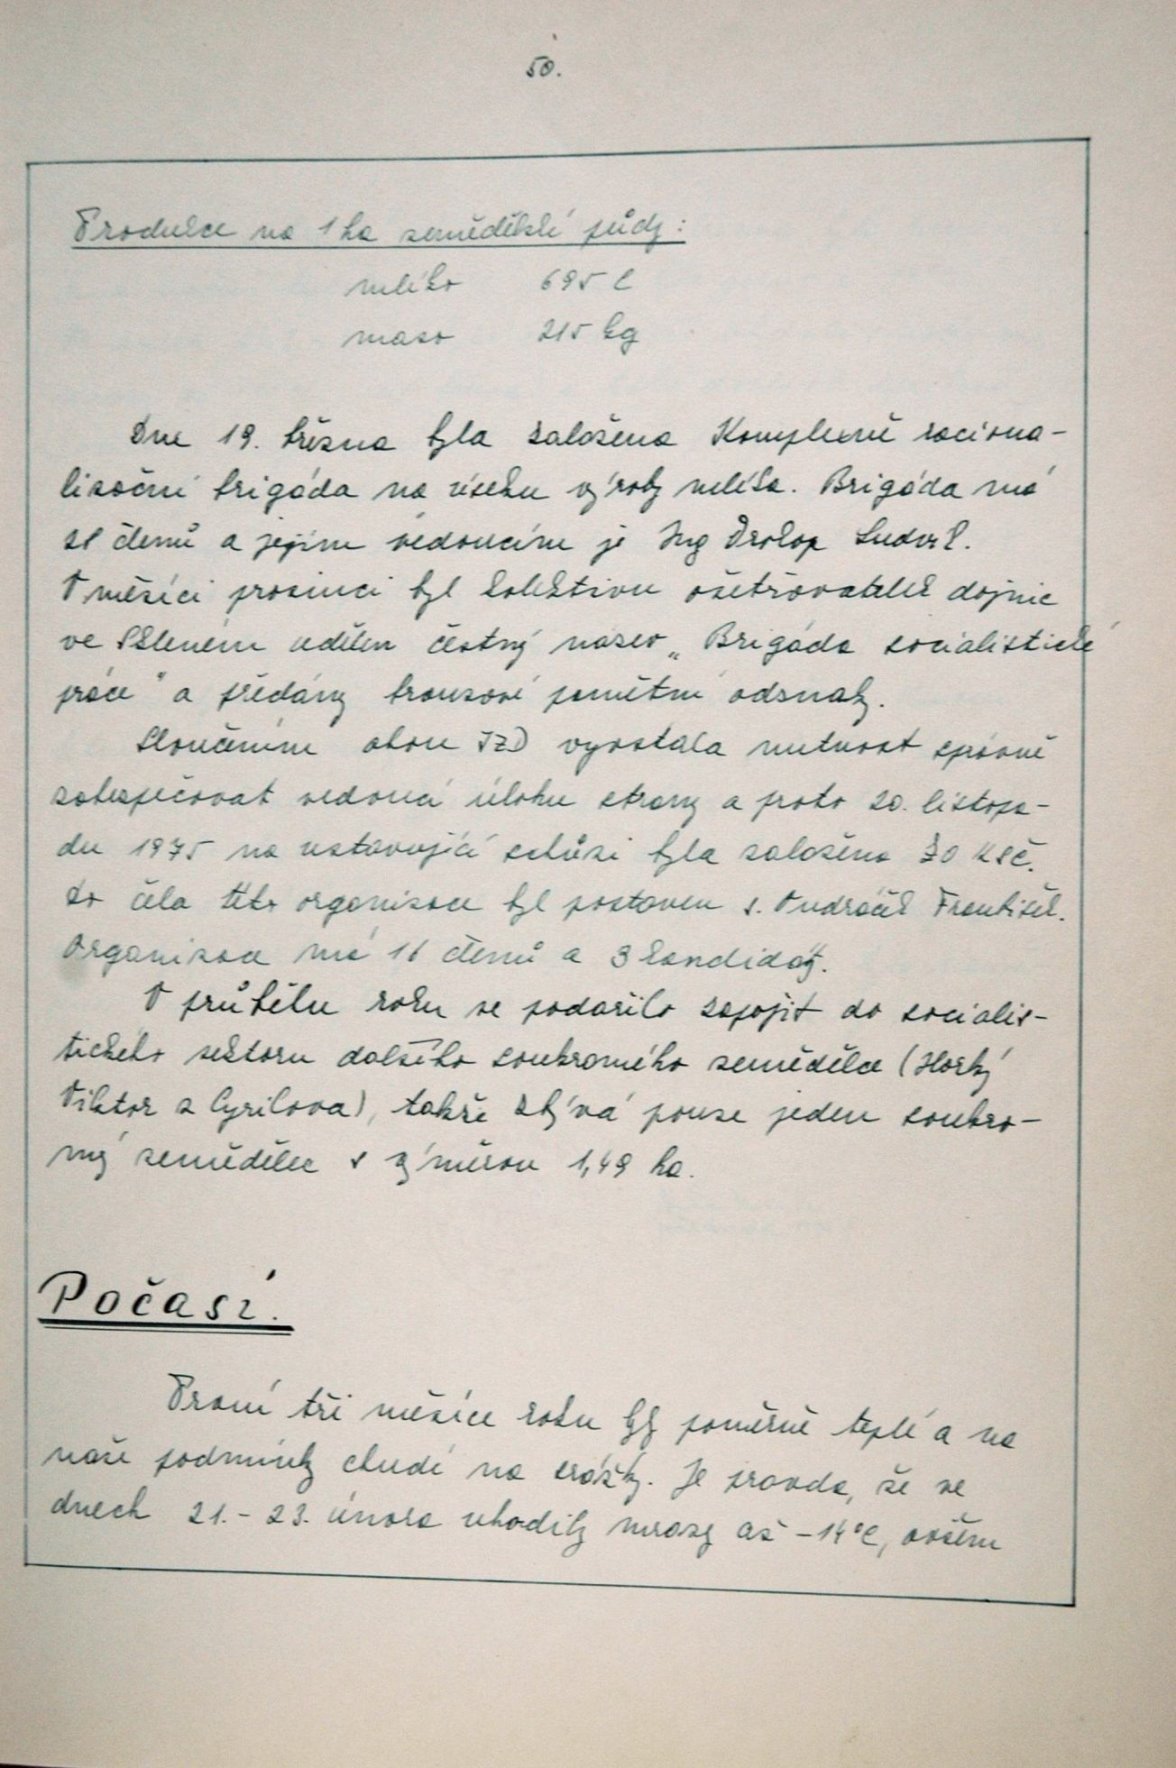 50.
Produkce na 1 ha zemědělské půdy:
mléko 695 l
maso 215 kg
Dne 19. března byla založena Komplexně raciona-
lizační brigáda na úseku výroby mléka. Brigáda má
členů a jejím vedoucím je Ing Prokop Ludvík.
V měsíci prosinci byl kolektivu ošetřovatelek dojnic
ve Skleném udělen čestný název „Brigáda socialistické
práce" a předány bronzové pamětní odznaky.
Sloučením obou JZD vyvstala nutnost správně
zabezpečovat vedoucí úlohu strany a proto 20. listopa-
du 1975 na ustavující schůzi byla založena ZO KSČ.
Do čela této organizace byl postaven s. Vondráček František.
Organizace má 11 členů a 3 kandidáty.
V průběhu roku se podařilo zapojit do socialis-
tického sektoru dalšího soukromého zemědělce (Horký
Viktor z Cyrilova), takže zbývá pouze jeden soukro-
mý zemědělec s výměrou 1,49 ha.
Počasí.
První tři měsíce roku byly poměrně teplé a na
naše podmínky chudé na srážky. Je pravda, že ve
dnech 21. - 23. února uhodily mrazy až -14°C, ovšem